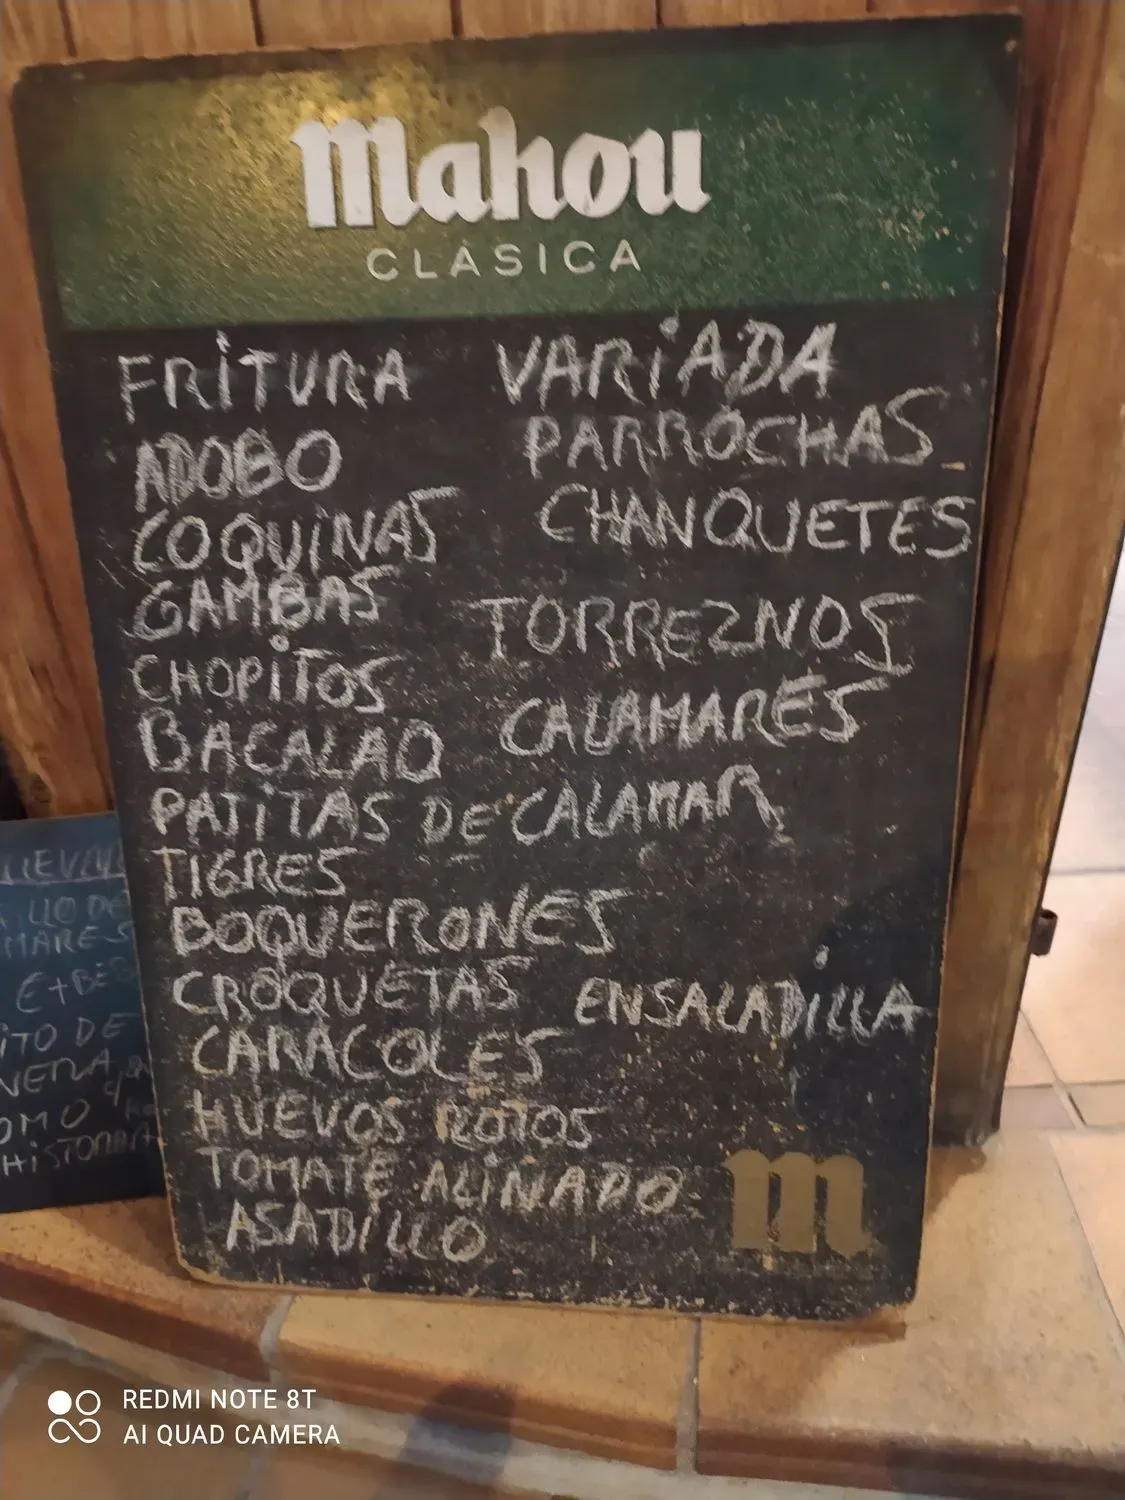 Mahou
CLÁSICA
FRITURA VARIADA
ADOBO PARROCHAS
COQUINAS CHANQUETES
GAMBAS TORREZNOS
CHOPITOS
BACALAO CALAMARES
PATITAS DE CALAMAR
TIGRES
BOQUERONES
CROQUETAS ENSALADILLA
CARACOLES
HUEVOS ROTOS
TOMATE ALINADO
ASADILLO
m
LLO DE
MARES
ITO DE
OMO
REDMI NOTE 8T
AI QUAD CAMERA